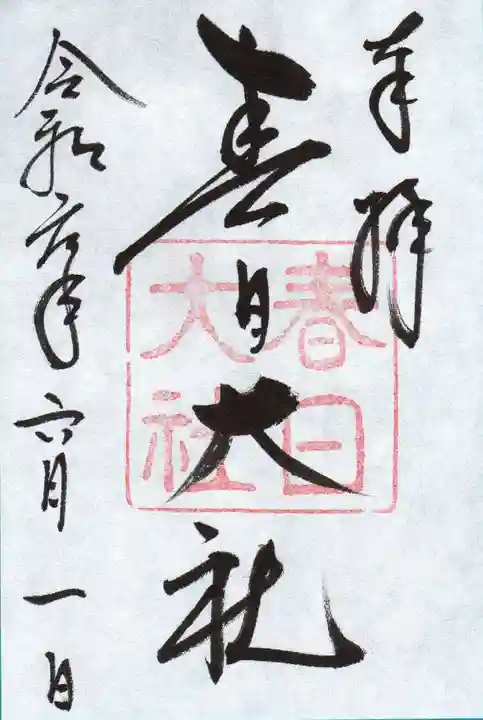 奉拝
春日大社
春日
大社
令和元年六月一日